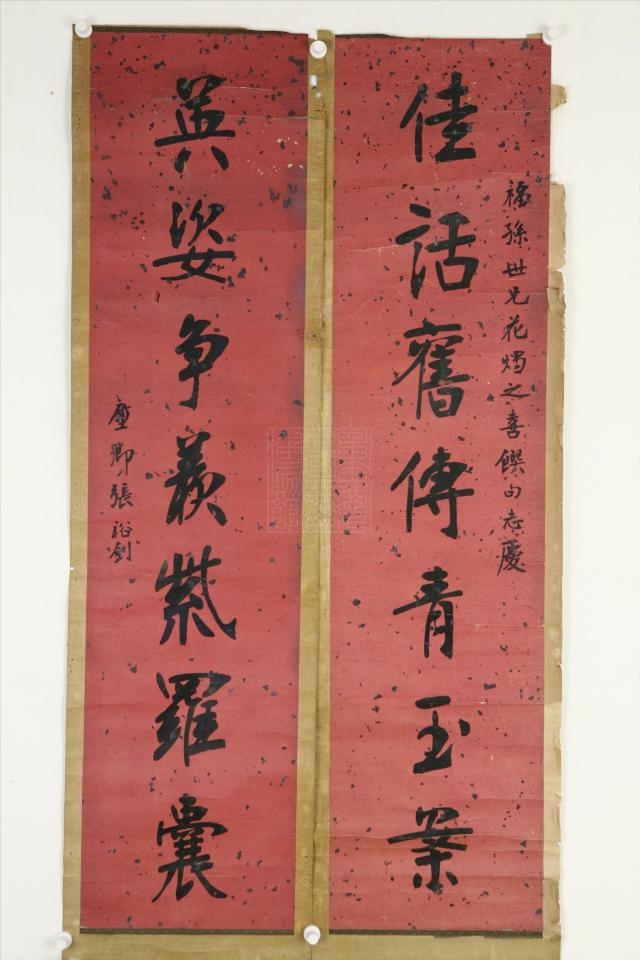 福孫世兄花燭之喜饌句志慶
佳話舊傳青玉案
英姿爭羨紫羅囊
廉卿張裕釗